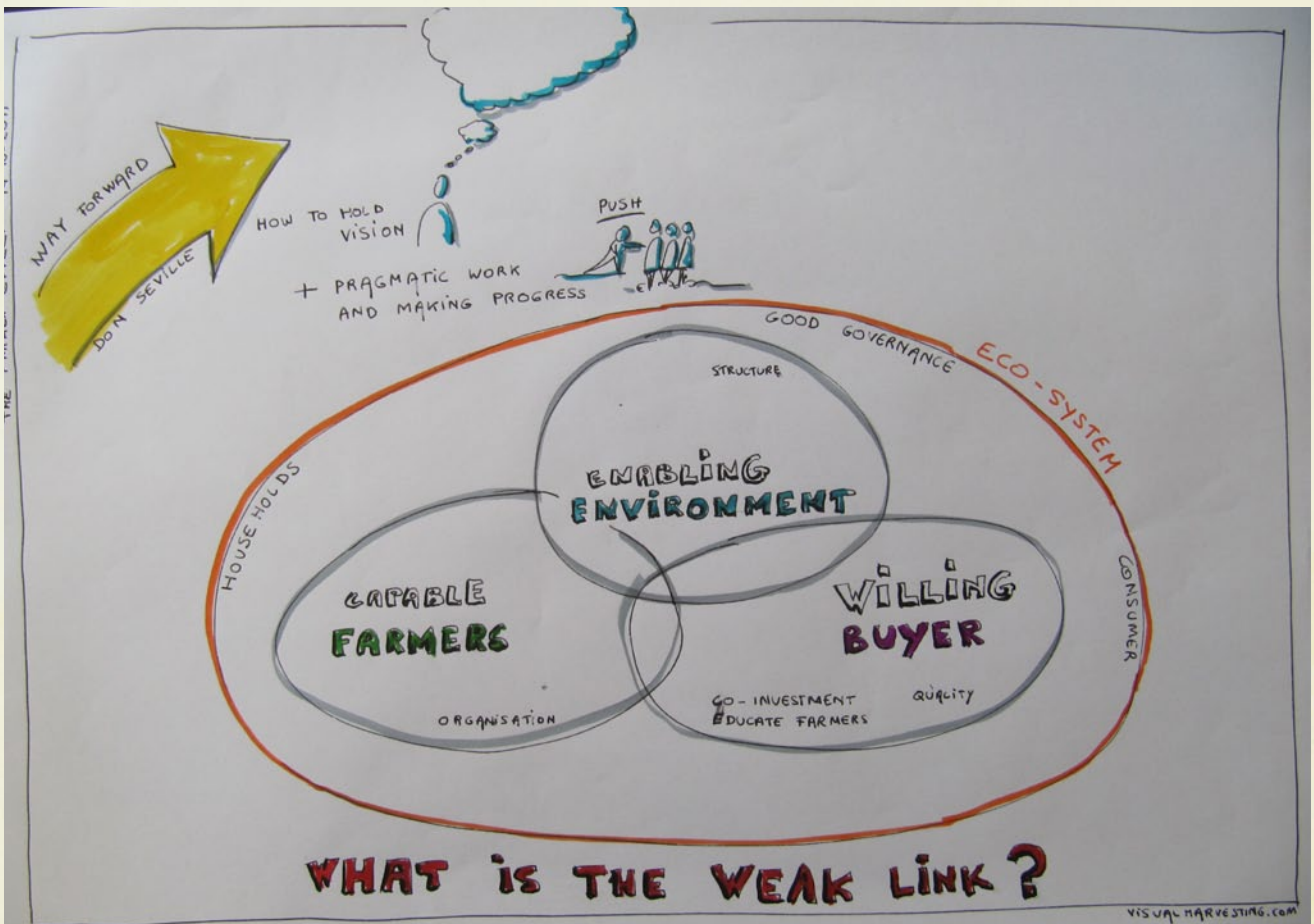 WAY FORWARD
DON SEVILLE
HOW TO HOLD
VISION
+ PRAGMATIC WORK
AND MAKING PROGRESS
PUSH
GOOD GOVERNANCE
ECO-SYSTEM
STRUCTURE
HOUSEHOLDS
ENABLING
ENVIRONMENT
CONSUMER
CAPABLE
FARMERS
ORGANISATION
WILLING
BUYER
CO-INVESTMENT
EDUCATE FARMERS
QUALITY
WHAT IS THE WEAK LINK?
VISUALHARVESTING.COM